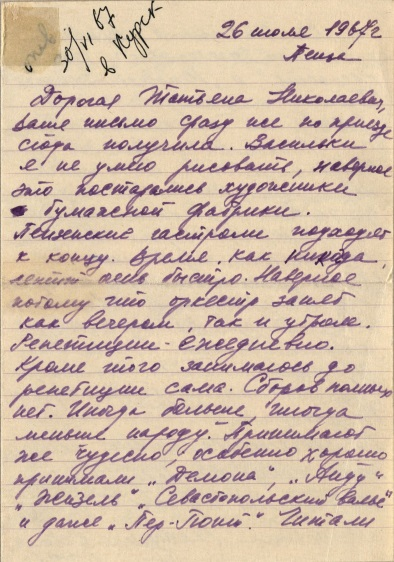 отв
30/VI 67
в Курск
26 июля 1967 г
Пенза
Дорогая Татьяна Николаевна,
ваше письмо сразу же по приезде
сюда получила. Васильки
я не умею рисовать, наверное
это постарались художники
бумажной фабрики.
Пензенские гастроли подходят
к концу. Время, как никогда,
летит очень быстро. Наверное
потому что оркестр занят
как вечером, так и утром.
Репетиции – ежедневно.
Кроме того занимаюсь до
репетиции сама. Сборов полных
нет. Иногда больше, иногда
меньше народу. Принимают
же чудесно, особенно хорошо
принимали „Демона", „Аиду"
„Жизель" „Севастопольский вальс"
и даже „Пер-Гюнт". Читали